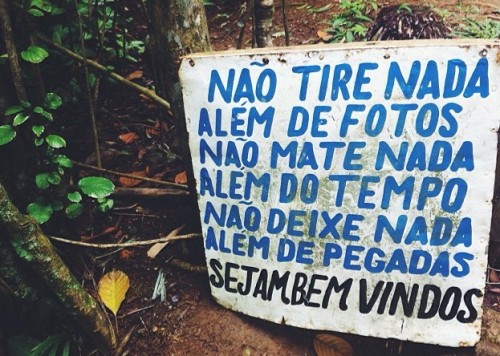 NÃO TIRE NADA
ALÉM DE FOTOS
NÃO MATE NADA
ALÉM DO TEMPO
NÃO DEIXE NADA
ALÉM DE PEGADAS
SEJAM BEM VINDOS